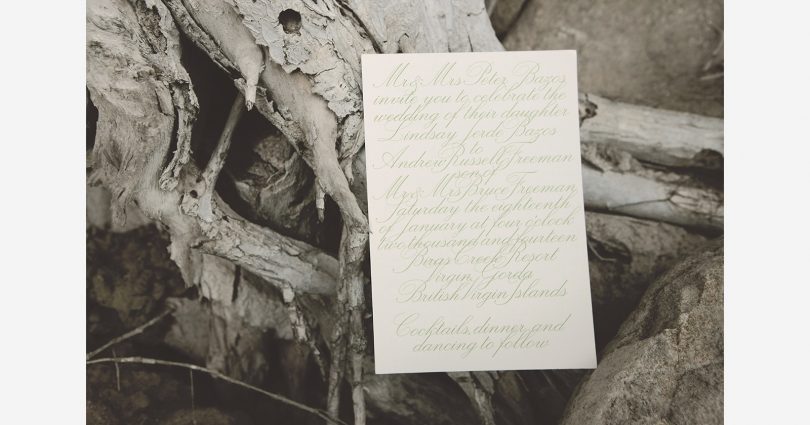 Mr & Mrs Peter Bazos
invite you to celebrate the
wedding of their daughter
Lindsay Jerdi Bazos
to
Andrew Russell Freeman
son of
Mr & Mrs Bruce Freeman
Saturday the eighteenth
of January at four o'clock
two thousand and fourteen
Biras Creek Resort
Virgin Gorda
British Virgin Islands
Cocktails, dinner and
dancing to follow